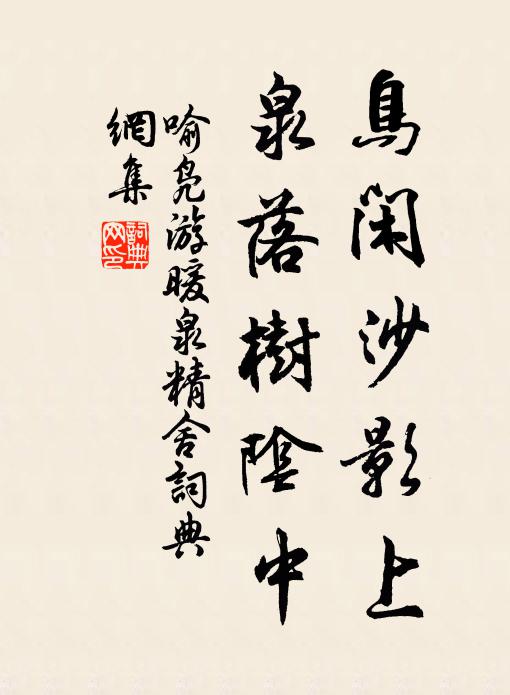 鳥閑沙影上
泉落樹陰中
喻鳧游暖泉精舍詞典
網集
詞典网印